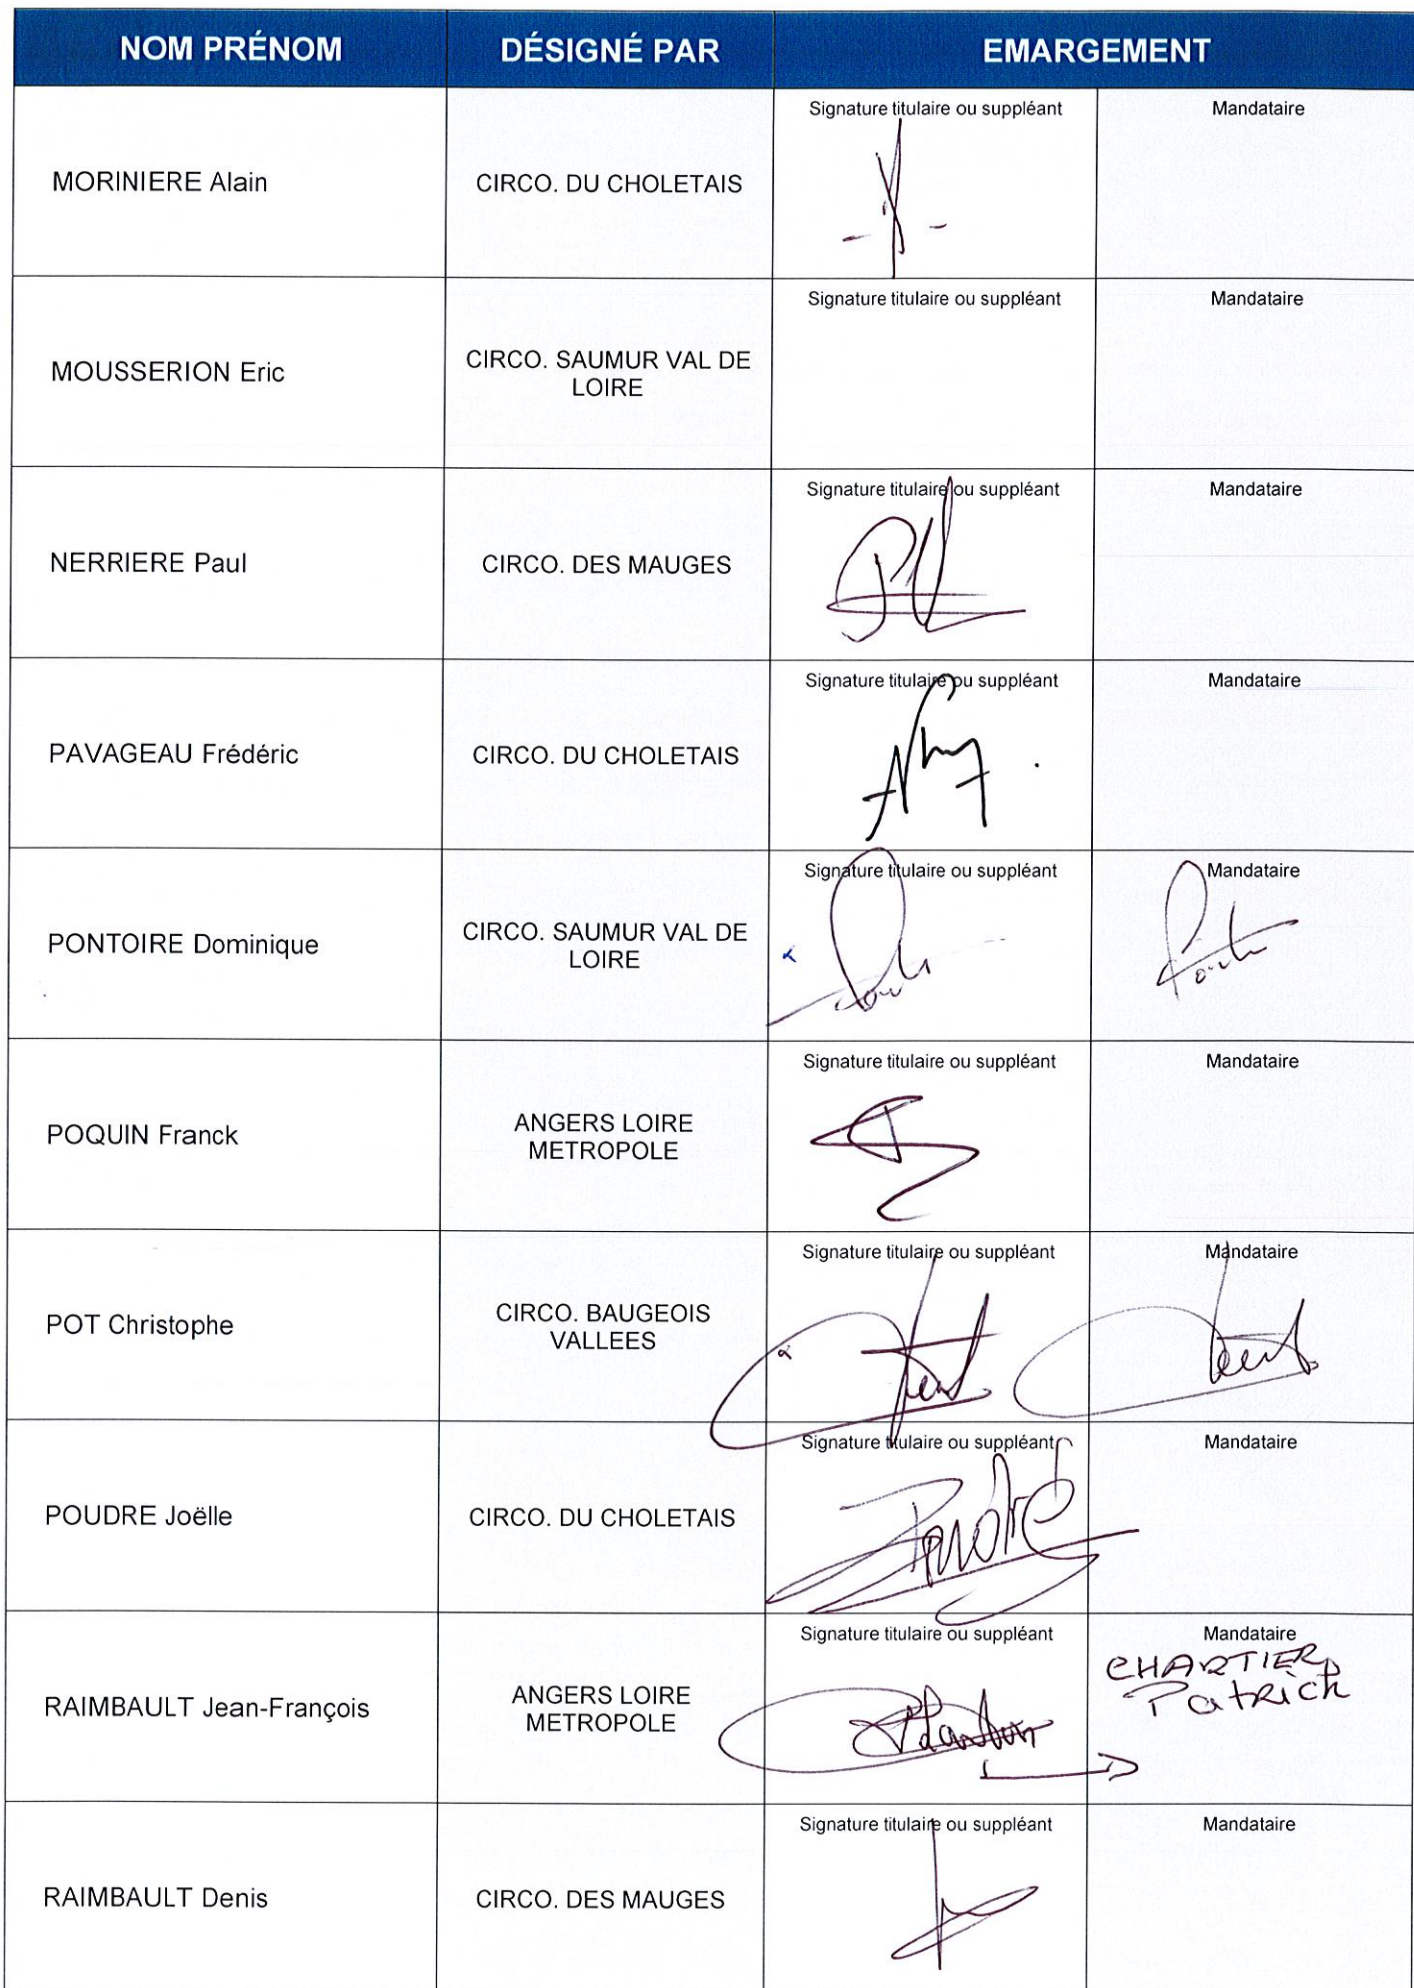 NOM PRÉNOM
DÉSIGNÉ PAR
EMARGEMENT
MORINIERE Alain
CIRCO. DU CHOLETAIS
Signature titulaire ou suppléant
Mandataire
MOUSSERION Eric
CIRCO. SAUMUR VAL DE
LOIRE
Signature titulaire ou suppléant
Mandataire
NERRIERE Paul
CIRCO. DES MAUGES
Signature titulaire ou suppléant
Mandataire
PAVAGEAU Frédéric
CIRCO. DU CHOLETAIS
Signature titulaire ou suppléant
Mandataire
PONTOIRE Dominique
CIRCO. SAUMUR VAL DE
LOIRE
Signature titulaire ou suppléant
Mandataire
POQUIN Franck
ANGERS LOIRE
METROPOLE
Signature titulaire ou suppléant
Mandataire
POT Christophe
CIRCO. BAUGEOIS
VALLEES
Signature titulaire ou suppléant
Mandataire
POUDRE Joëlle
CIRCO. DU CHOLETAIS
Signature titulaire ou suppléant
Mandataire
RAIMBAULT Jean-François
ANGERS LOIRE
METROPOLE
Signature titulaire ou suppléant
Mandataire
CHARTIER
Patrick
RAIMBAULT Denis
CIRCO. DES MAUGES
Signature titulaire ou suppléant
Mandataire